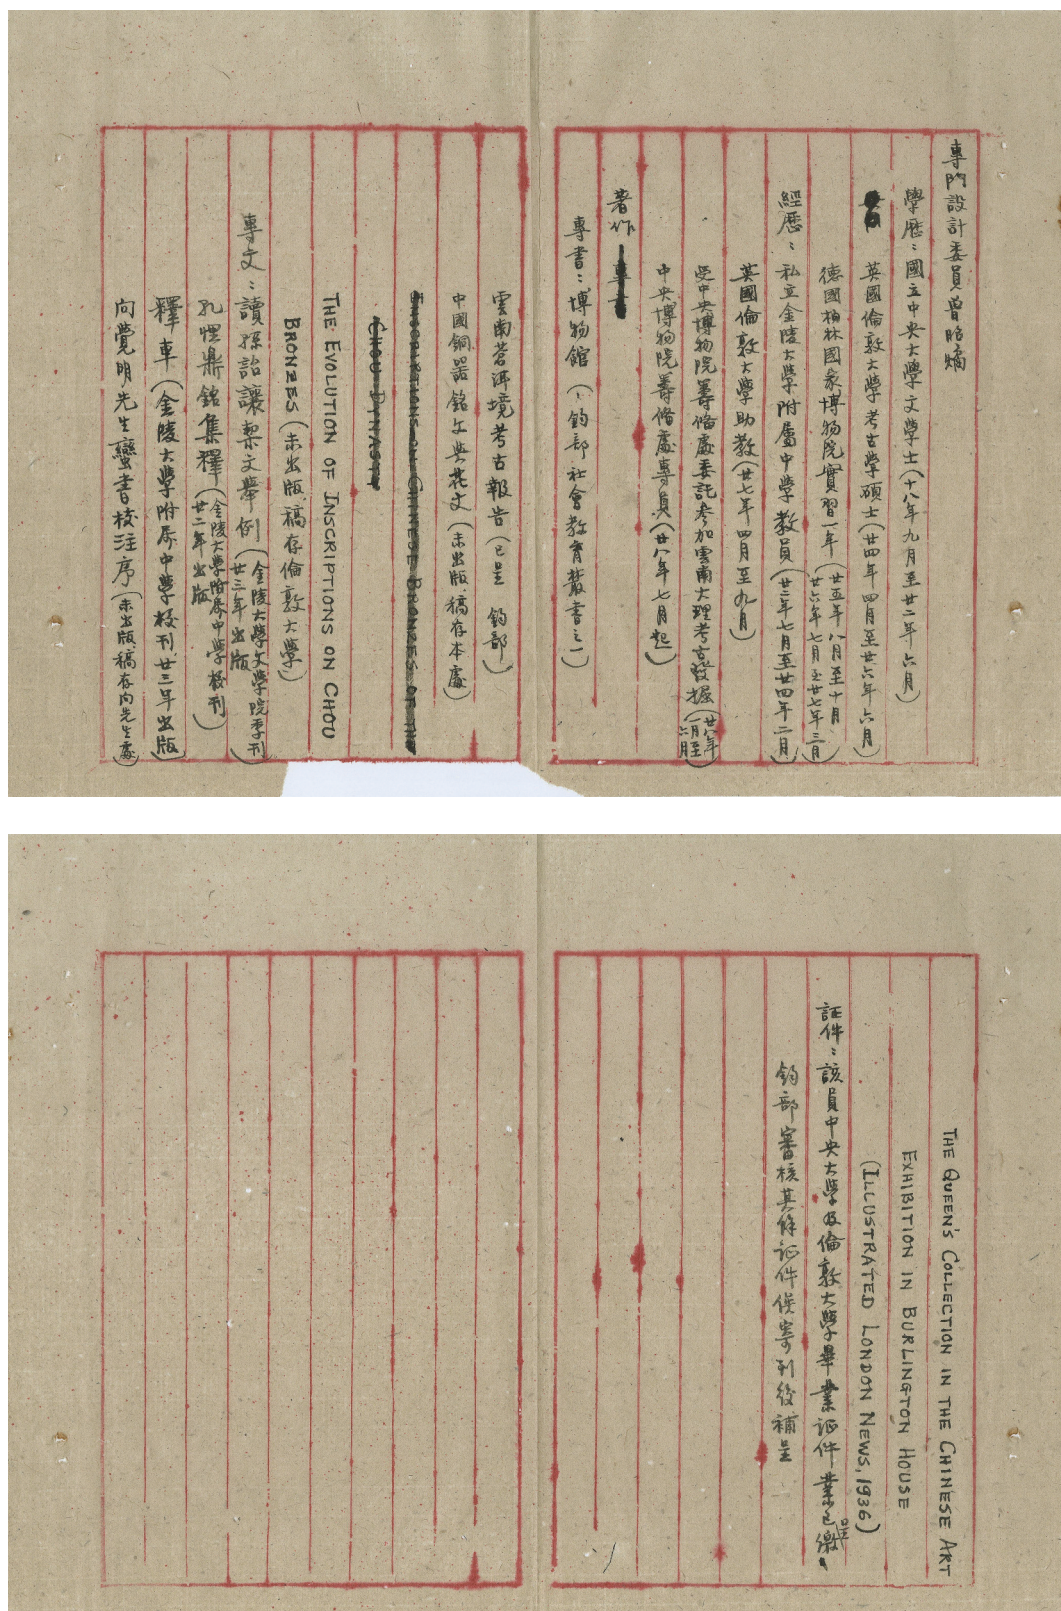 專門設計委員曾昭燏
學歷：國立中央大學文學士（十八年九月至廿二年六月）
英國倫敦大學考古學碩士（廿四年四月至廿六年六月）
德國柏林國家博物院實習一年（廿五年八月至十月 廿六年七月至廿七年三月）
經歷：私立金陵大學附屬中學教員（廿二年七月至廿四年二月）
英國倫敦大學助教（廿七年四月至九月）
受中央博物院籌備處委託參加雲南大理考古發掘（廿八年一月至六月）
中央博物院籌備處專員（廿八年七月起）
著作
專書：博物館（鈞部社會教育叢書之一）
雲南蒼洱境考古報告（已呈 鈞部）
中國銅器銘文與花文（未出版，稿存本處）
INSCRIPTIONS ON CHINESE BRONZES OF THE
CHOU DYNASTY
THE EVOLUTION OF INSCRIPTIONS ON CHOU
BRONZES（未出版，稿存倫敦大學）
專文：讀孫詒讓栔文舉例（金陵大學文學院季刊 廿三年出版）
孔悝鼎銘集釋（金陵大學附屬中學校刊 廿二年出版）
釋車（金陵大學附屬中學校刊廿三年出版）
向覺明先生蠻書校注序（未出版稿存向先生處）
THE QUEEN'S COLLECTION IN THE CHINESE ART
EXHIBITION IN BURLINGTON HOUSE
(ILLUSTRATED LONDON NEWS, 1936)
証件：該員中央大學及倫敦大學畢業証件業已繳呈
鈞部審核其餘証件俟寄到後補呈